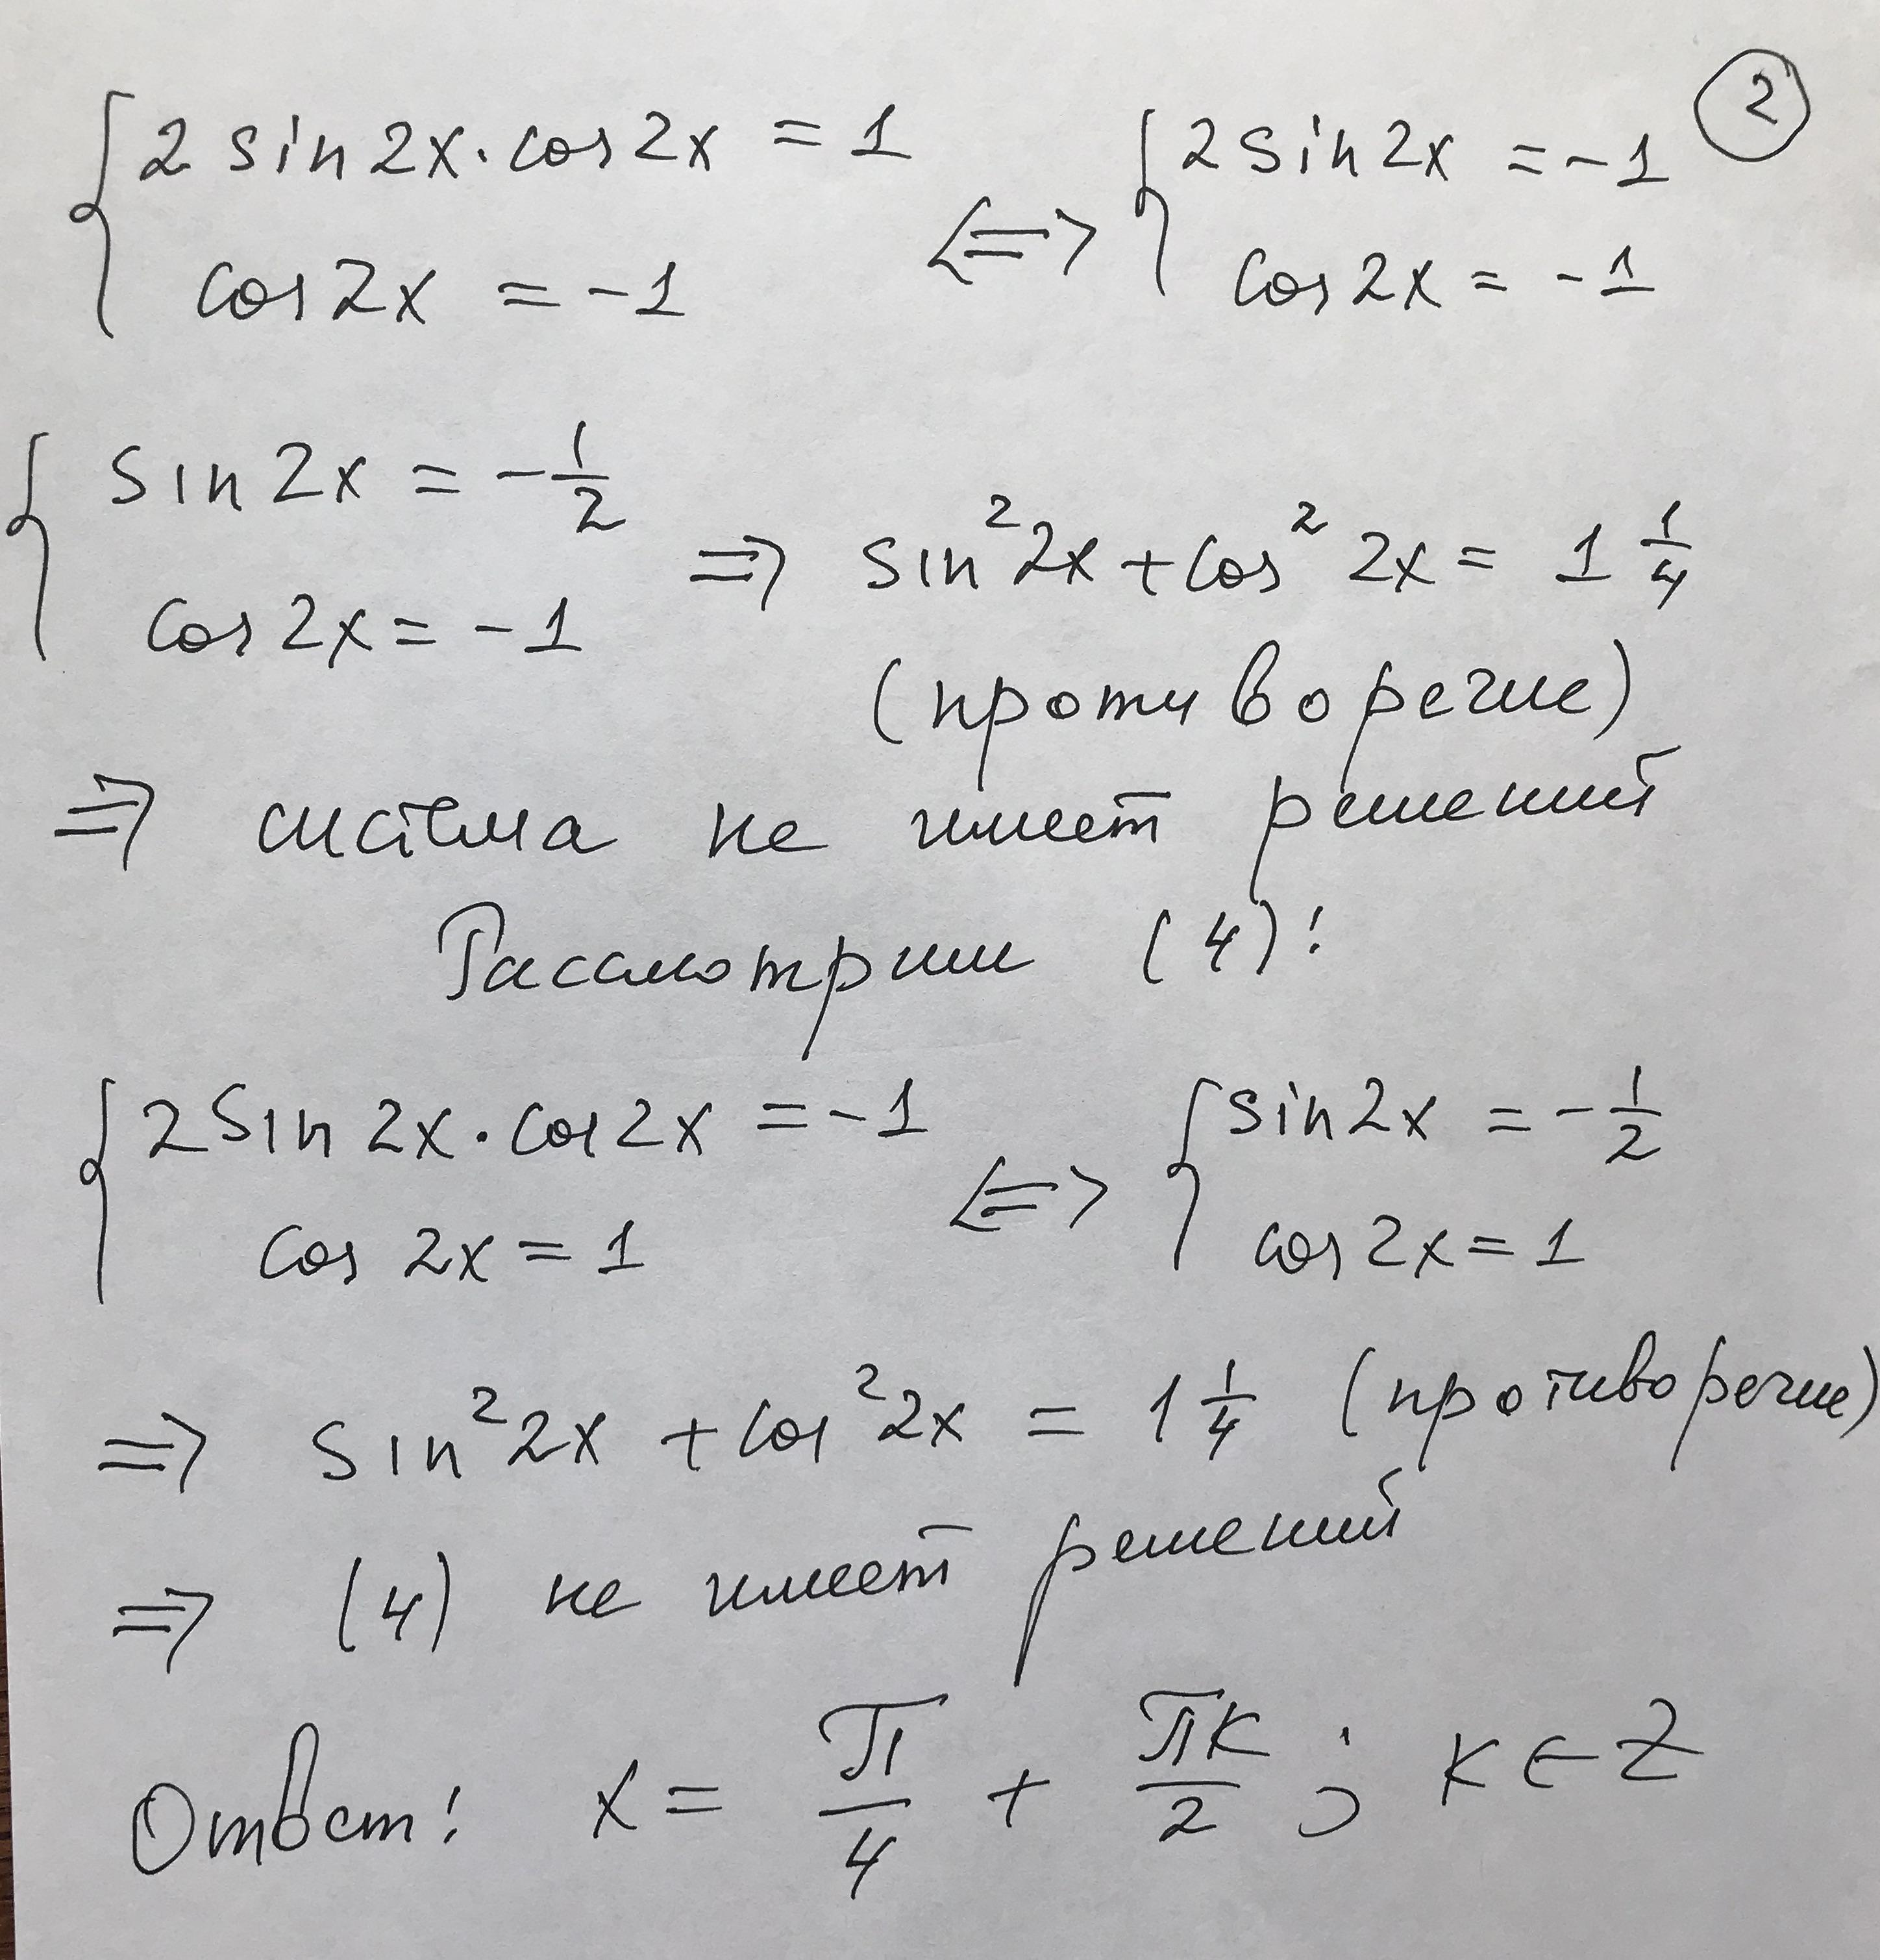 2
{ 2 sin 2x · cos 2x = 1 <=> { 2 sin 2x = -1
cos 2x = -1 cos 2x = -1
{ sin 2x = -1/2
cos 2x = -1 => sin² 2x + cos² 2x = 1 1/4
(противоречие)
=> система не имеет решений
Рассмотрим (4):
{ 2 sin 2x · cos 2x = -1 <=> { sin 2x = -1/2
cos 2x = 1 cos 2x = 1
=> sin² 2x + cos² 2x = 1 1/4 (противоречие)
=> (4) не имеет решений
Ответ: x = π/4 + πk/2 ; k ∈ Z